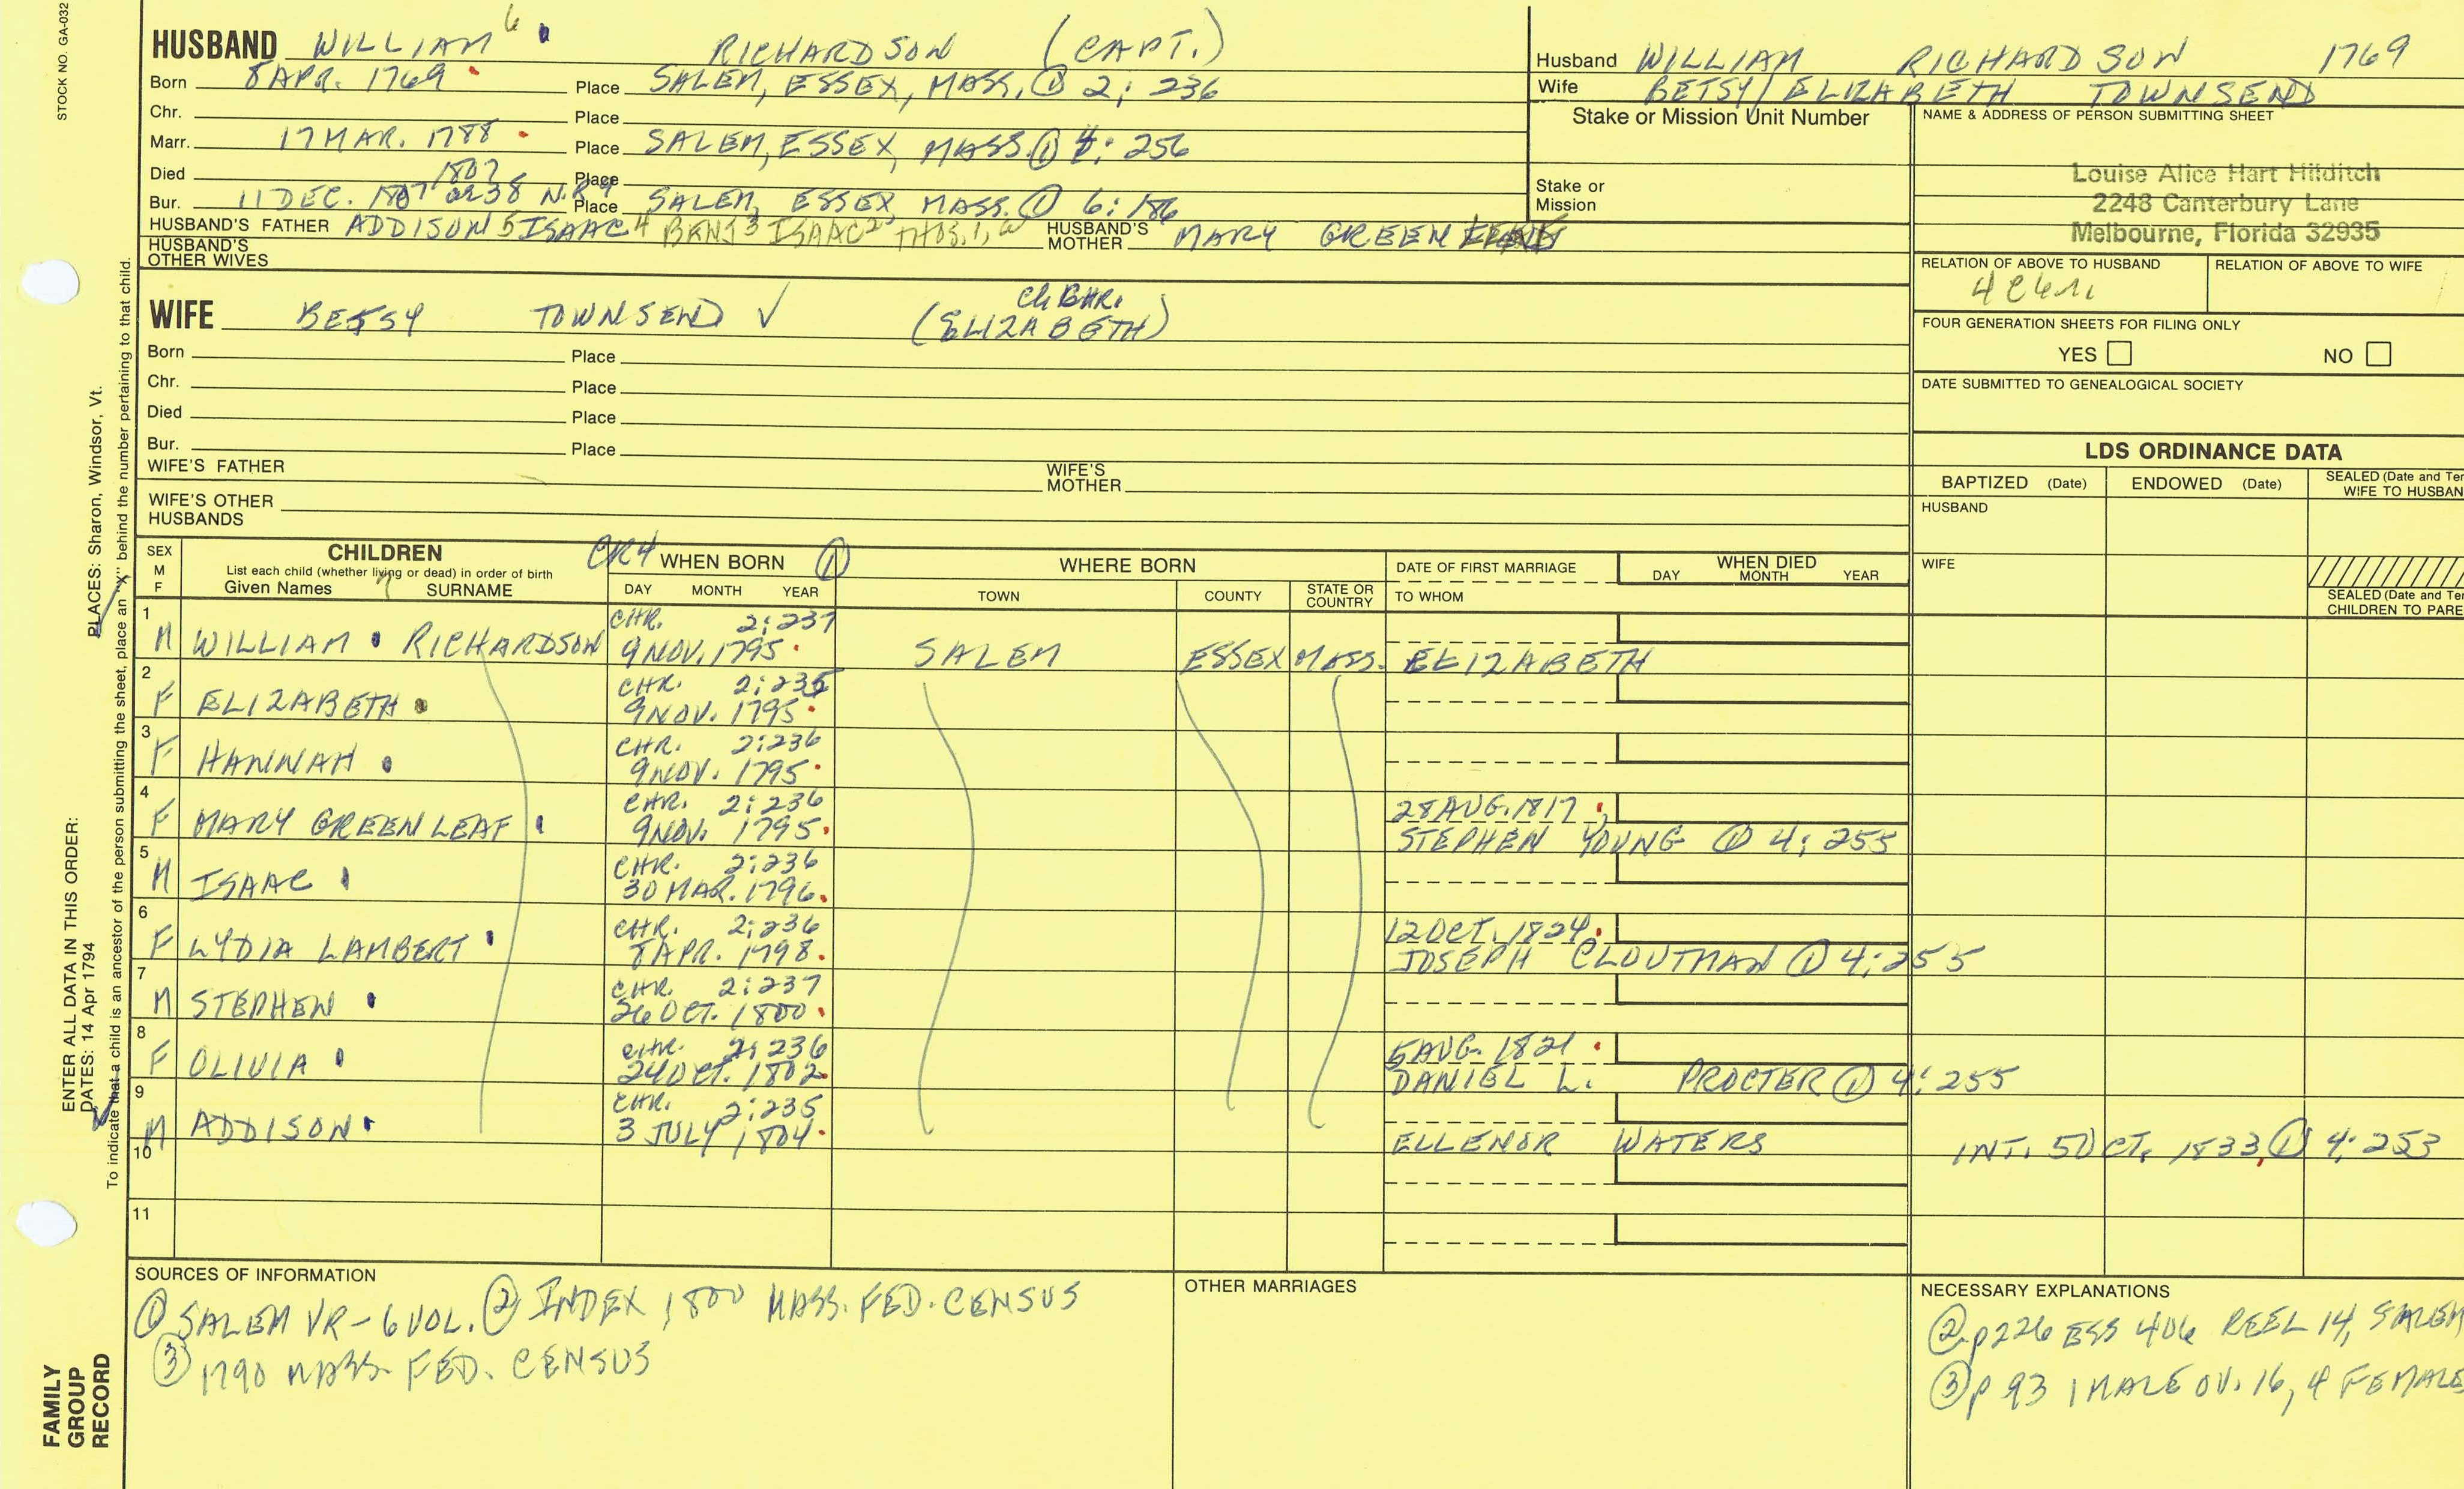 STOCK NO. GA-032
HUSBAND WILLIAM 6 RICHARDSON (CAPT.)
Born 8 APR. 1769 Place SALEM, ESSEX, MASS. ① 2; 236
Chr. Place
Marr. 17 MAR. 1788 Place SALEM, ESSEX, MASS. ① 4: 256
Died 1807 Place
Bur. 11 DEC. 1807 Place SALEM, ESSEX, MASS. ① 6: 186
HUSBAND'S FATHER ADDISON 5 ISAAC 4 BENJ 3 ISAAC 2 THOS. 1, HUSBAND'S MOTHER MARY GREEN
HUSBAND'S OTHER WIVES
WIFE BETSY TOWNSEND ✓ (ELIZABETH)
Born Place
Chr. Place
Died Place
Bur. Place
WIFE'S FATHER WIFE'S MOTHER
WIFE'S OTHER HUSBANDS
Husband WILLIAM RICHARDSON 1769
Wife BETSY/ELIZABETH TOWNSEND
Stake or Mission Unit Number
Stake or Mission
NAME & ADDRESS OF PERSON SUBMITTING SHEET
Louise Alice Hart Hilditch
2248 Canterbury Lane
Melbourne, Florida 32935
RELATION OF ABOVE TO HUSBAND RELATION OF ABOVE TO WIFE
FOUR GENERATION SHEETS FOR FILING ONLY
YES NO
DATE SUBMITTED TO GENEALOGICAL SOCIETY
LDS ORDINANCE DATA
BAPTIZED (Date) ENDOWED (Date) SEALED (Date and
WIFE TO
HUSBAND
WIFE
SEALED (Date and
CHILDREN TO
SEX M F CHILDREN
List each child (whether living or dead) in order of birth
Given Names SURNAME
CR4 WHEN BORN ①
DAY MONTH YEAR
WHERE BORN
TOWN COUNTY STATE OR COUNTRY
DATE OF FIRST MARRIAGE
TO WHOM
WHEN DIED
DAY MONTH YEAR
1 CHR. 2:237
M WILLIAM RICHARDSON 9 NOV. 1795 SALEM ESSEX MASS. ELIZABETH
2 CHR. 2:235
F ELIZABETH 9 NOV. 1795
3 CHR. 2:236
F HANNAH 9 NOV. 1795
4 CHR. 2:236 28 AUG. 1817
F MARY GREENLEAF 9 NOV. 1795 STEPHEN YOUNG ① 4: 255
5 CHR. 2:236
M ISAAC 30 MAR. 1796
6 CHR. 2:236 12 OCT. 1824
F LYDIA LAMBERT 8 APR. 1798 JOSEPH CLOUTMAN ① 4:255
7 CHR. 2:237
M STEPHEN 26 OCT. 1800
8 CHR. 2:236 5 AUG. 1821
F OLIVIA 24 OCT. 1802 DANIEL L. PROCTER ① 4: 255
9 CHR. 2:235
M ADDISON 3 JULY 1804 ELLENOR WATERS INT. 5 OCT. 1833, ① 4:253
10
11
SOURCES OF INFORMATION
① SALEM VR - 6 VOL. ② INDEX 1800 MASS. FED. CENSUS
③ 1790 MASS. FED. CENSUS
OTHER MARRIAGES
NECESSARY EXPLANATIONS
② p226 ESS 406 REEL 14, SALEM
③ p 93 1 MALE OV. 16, 4 FEMALE
FAMILY GROUP RECORD
ENTER ALL DATA IN THIS ORDER:
DATES: 14 Apr 1794
PLACES: Sharon, Windsor, Vt.
To indicate that a child is an ancestor of the person submitting the sheet, place an "X" behind the number pertaining to that child.